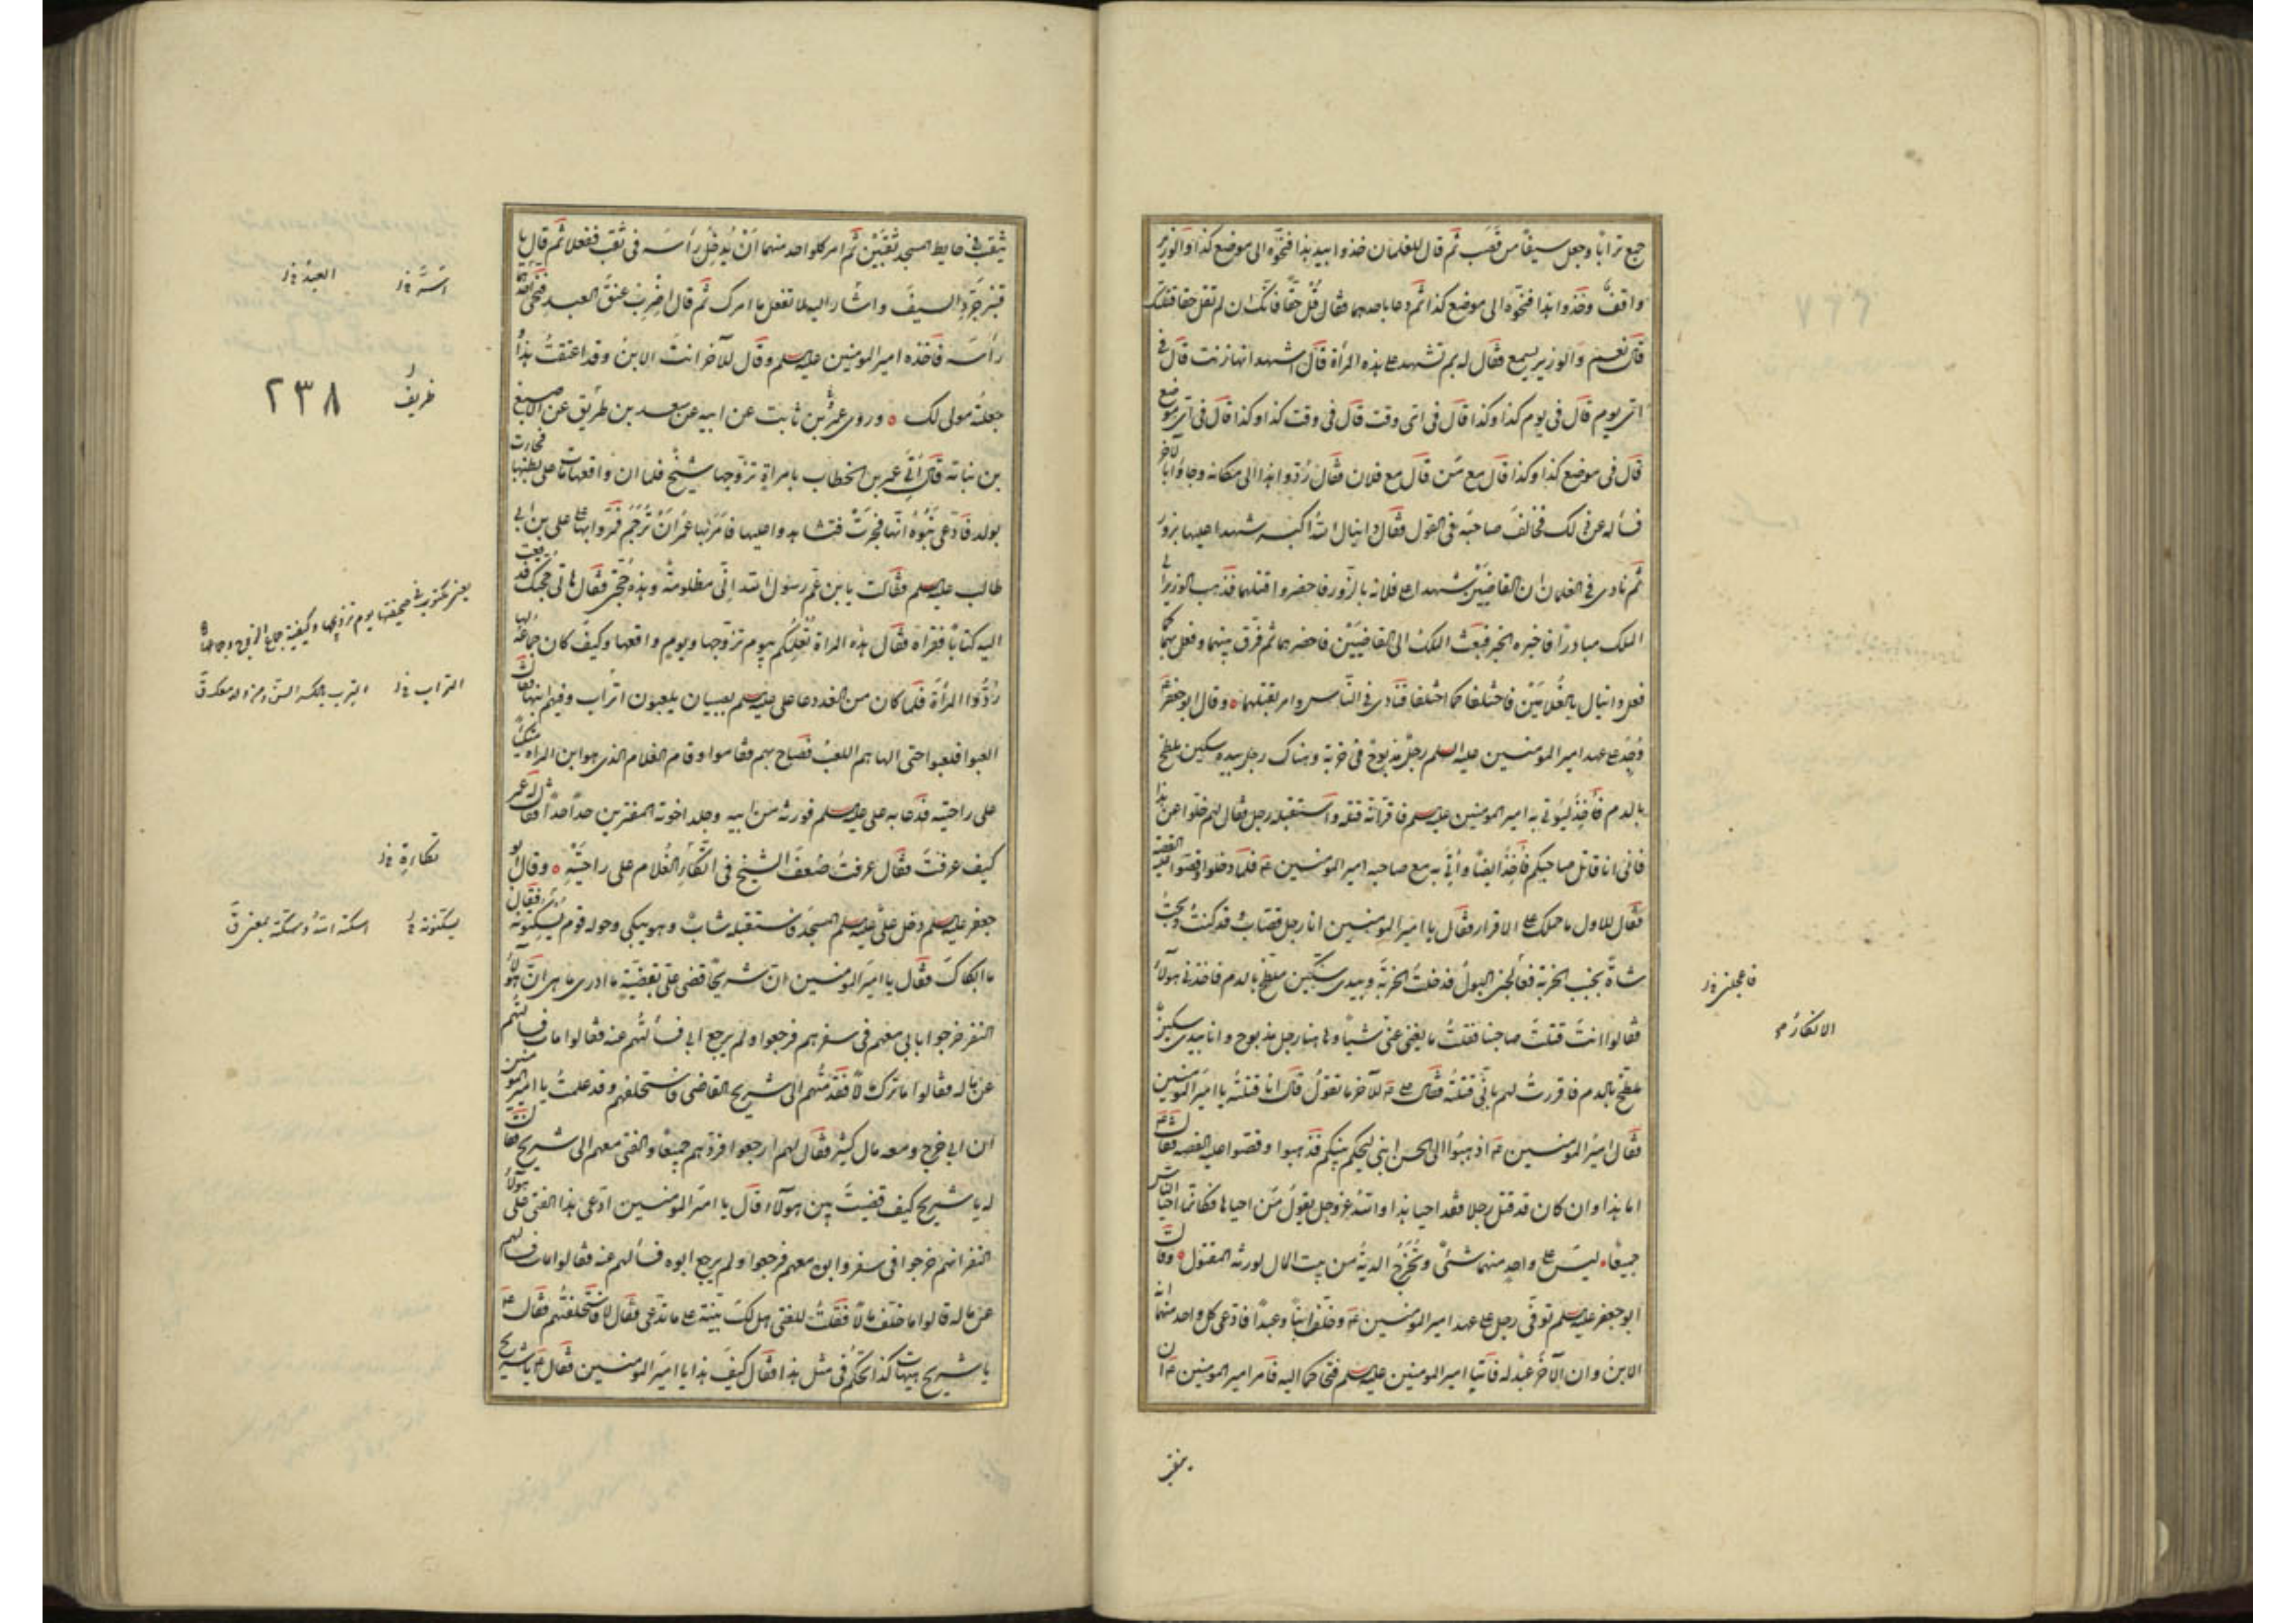 جمع ترابا وجعل سيفا من قصب ثم قال للغلمان خذوا بيد هذا فنحوه الى موضع كذا والوزير
واقف وخذوا هذا فنحوه الى موضع كذا ثم دعا باحدهما فقال قل حقا فانك ان لم تقل حقا قتلتك
قال نعم والوزير يسمع فقال له بم تشهد على هذه المرأة قال اشهد انها زنت قال في
اى يوم قال في يوم كذا وكذا قال في اى وقت قال في وقت كذا وكذا قال في اى موضع
قال في موضع كذا وكذا قال مع من قال مع فلان فقال ردوا هذا الى مكانه وجاؤا بالآخر
فسأله عن ذلك فخالف صاحبه في القول فقال دانيال الله اكبر شهدا عليها بزور
ثم نادى في الغلمان ان القاضيين شهدا على فلانة بالزور فاحضروا قتلهما فذهب الوزير الى
الملك مبادرا فاخبره الخبر فبعث الملك الى القاضيين فاحضرهما ثم فرق بينهما وفعل بهما كما
فعل دانيال بالغلامين فاختلفا كما اختلفا فنادى في الناس وامر بقتلهما ٥ وقال ابو جعفر ع
وجد على عهد امير المؤمنين عليه السلم رجل مذبوح في خربة وهناك رجل بيده سكين ملطخ
بالدم فأخذ ليؤتى به امير المومنين عليه السلم فاقر انه قتله واستقبله رجل فقال لهم خلوا عن هذا
فانى انا قاتل صاحبكم فأخذ ايضا وأتى به مع صاحبه امير المؤمنين ع فلما دخلوا وقصوا عليه القصة
فقال للاول ما حملك على الاقرار فقال يا امير المؤمنين انا رجل قصاب وقد كنت ذبحت
شاة بجنب الخربة فعاجلنى البول فدخلت الخربة وبيدى سكين ملطخ بالدم فاخذنى هولاء
فقالوا انت قتلت صاحبنا فقلت ما يغنى عنى شيأ وهاهنا رجل مذبوح وانا بيدى سكين
ملطخ بالدم فاقررت لهم بأنى قتلته فقال على ع للآخر ما تقول قال انا قتلته يا امير المومنين
فقال امير المؤمنين ع اذهبوا الى الحسن ابنى ليحكم بينكم فذهبوا وقصوا عليه القصة فقال ع
اما هذا وان كان قد قتل رجلا فقد احيا هذا والله عز وجل يقول من احياها فكانما احيا الناس
جميعا ليس على واحد منهما شئ وتخرج الدية من بيت المال لورثة المقتول ٥ وقال
ابو جعفر عليه السلم توفى رجل على عهد امير المؤمنين ع وخلف ابنا وعبدا فادعى كل واحد منهما انه
الابن وان الآخر عبد له فأتيا امير المومنين عليه السلم فتحاكما اليه فأمر امير المومنين ع ان
يثقب
الانكار
يثقب في حايط المسجد ثقبين ثم امر كل واحد منهما ان يدخل رأسه في ثقب ففعلا ثم قال يا
قنبر جرد السيف واشار اليه لا تفعل ما امرك ثم قال اضرب عنق العبد فنحى احدهما
رأسه فاخذه امير المومنين عليه السلم وقال للآخر انت الابن وقد اعتقت هذا
جعلته مولى لك ٥ وروى عمرو بن ثابت عن ابيه عن سعد بن طريق عن الاصبغ
بن نباته قال أتى عمر بن الخطاب بامرأة تزوجها شيخ فلما ان واقعها مات على بطنها فجاءت
بولد فادعى بنوه انها فجرت فتشاهدوا عليها فأمر بها عمر ان ترجم فمروا بها على على بن ابي
طالب عليه السلم فقالت يا بن عم رسول الله انى مظلومة وهذه حجتى فقال هاتى حجتك فدفعت
اليه كتابا فقرأه فقال هذه المرأة تعلمكم بيوم تزوجها ويوم واقعها وكيف كان جماعه لها
ردوا المرأة فلما كان من الغد دعا على عليه السلم بصبيان يلعبون اتراب وفيهم ابنها فقال
العبوا فلعبوا حتى الهاهم اللعب فصاح بهم فقاموا وقام الغلام الذى هو ابن المرأة متكئا
على راحتيه فدعا به على عليه السلم فورثه من ابيه وجلد اخوته المفترين حدا حدا فقال له عمر
كيف عرفت فقال عرفت ضعف الشيخ في اتكاء الغلام على راحتيه ٥ وقال ابو
جعفر عليه السلم دخل على عليه السلم المسجد فاستقبله شاب وهو يبكى وحوله قوم يسكتونه فقال
ما ابكاك فقال يا امير المومنين ان شريحا قضى على بقضية ما ادرى ما هى ان هؤلاء
النفر خرجوا بابى معهم في سفرهم فرجعوا ولم يرجع ابى فسألتهم عنه فقالوا مات فسألتهم
عن ماله فقالوا ما ترك مالا فقدمتهم الى شريح القاضى فاستحلفهم وقد علمت يا امير المومنين
ان ابى خرج ومعه مال كثير فقال لهم ارجعوا فردهم جميعا والفتى معهم الى شريح فقال
له يا شريح كيف قضيت بين هولاء قال يا امير المومنين ادعى هذا الفتى على هولاء
النفر انهم خرجوا في سفر وابوه معهم فرجعوا ولم يرجع ابوه فسألهم عنه فقالوا مات فسألهم
عن ماله قالوا ما خلف مالا فقلت للفتى هل لك بينة على ما تدعى فقال لا فاستحلفتهم فقال على ع
يا شريح هيهات كذا تحكم في مثل هذا فقال كيف هذا يا امير المومنين فقال ع يا شريح
العبد
ظريف
٢٣٨